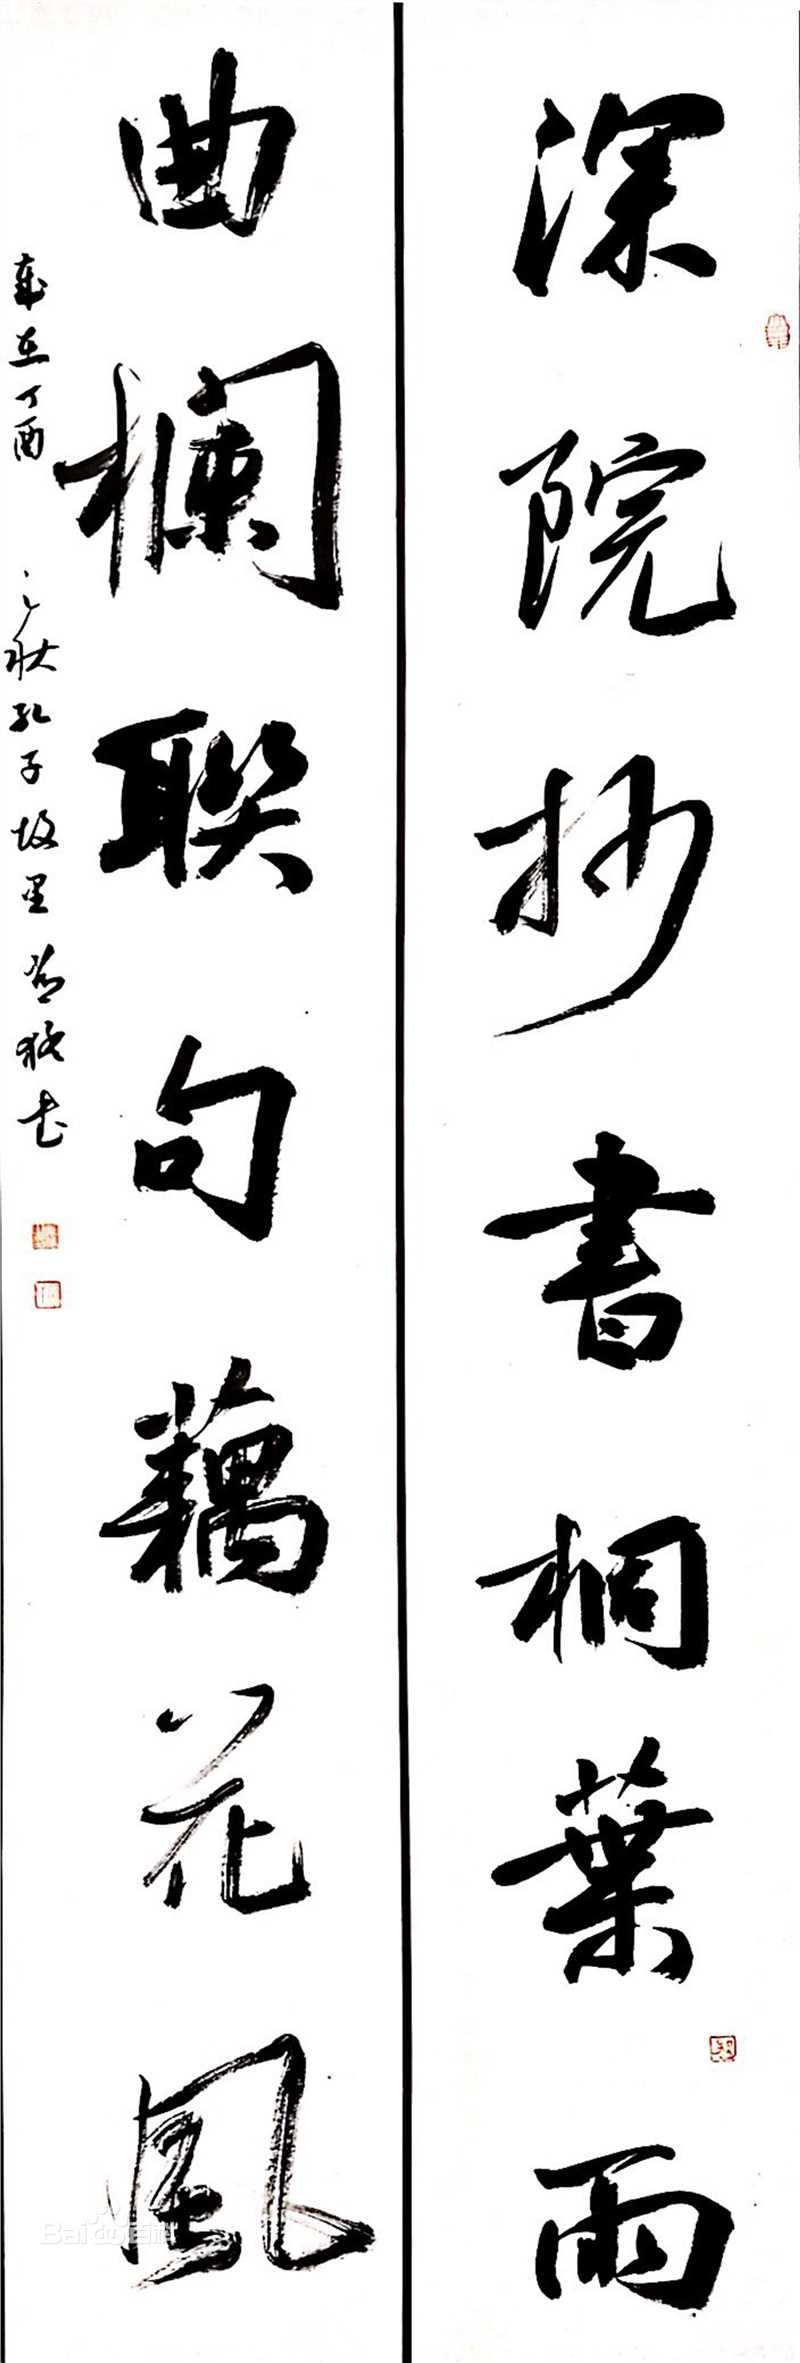 深院抄書桐葉雨
曲欄聯句藕花風
歲在丁酉之秋孔子故里
Bai百科